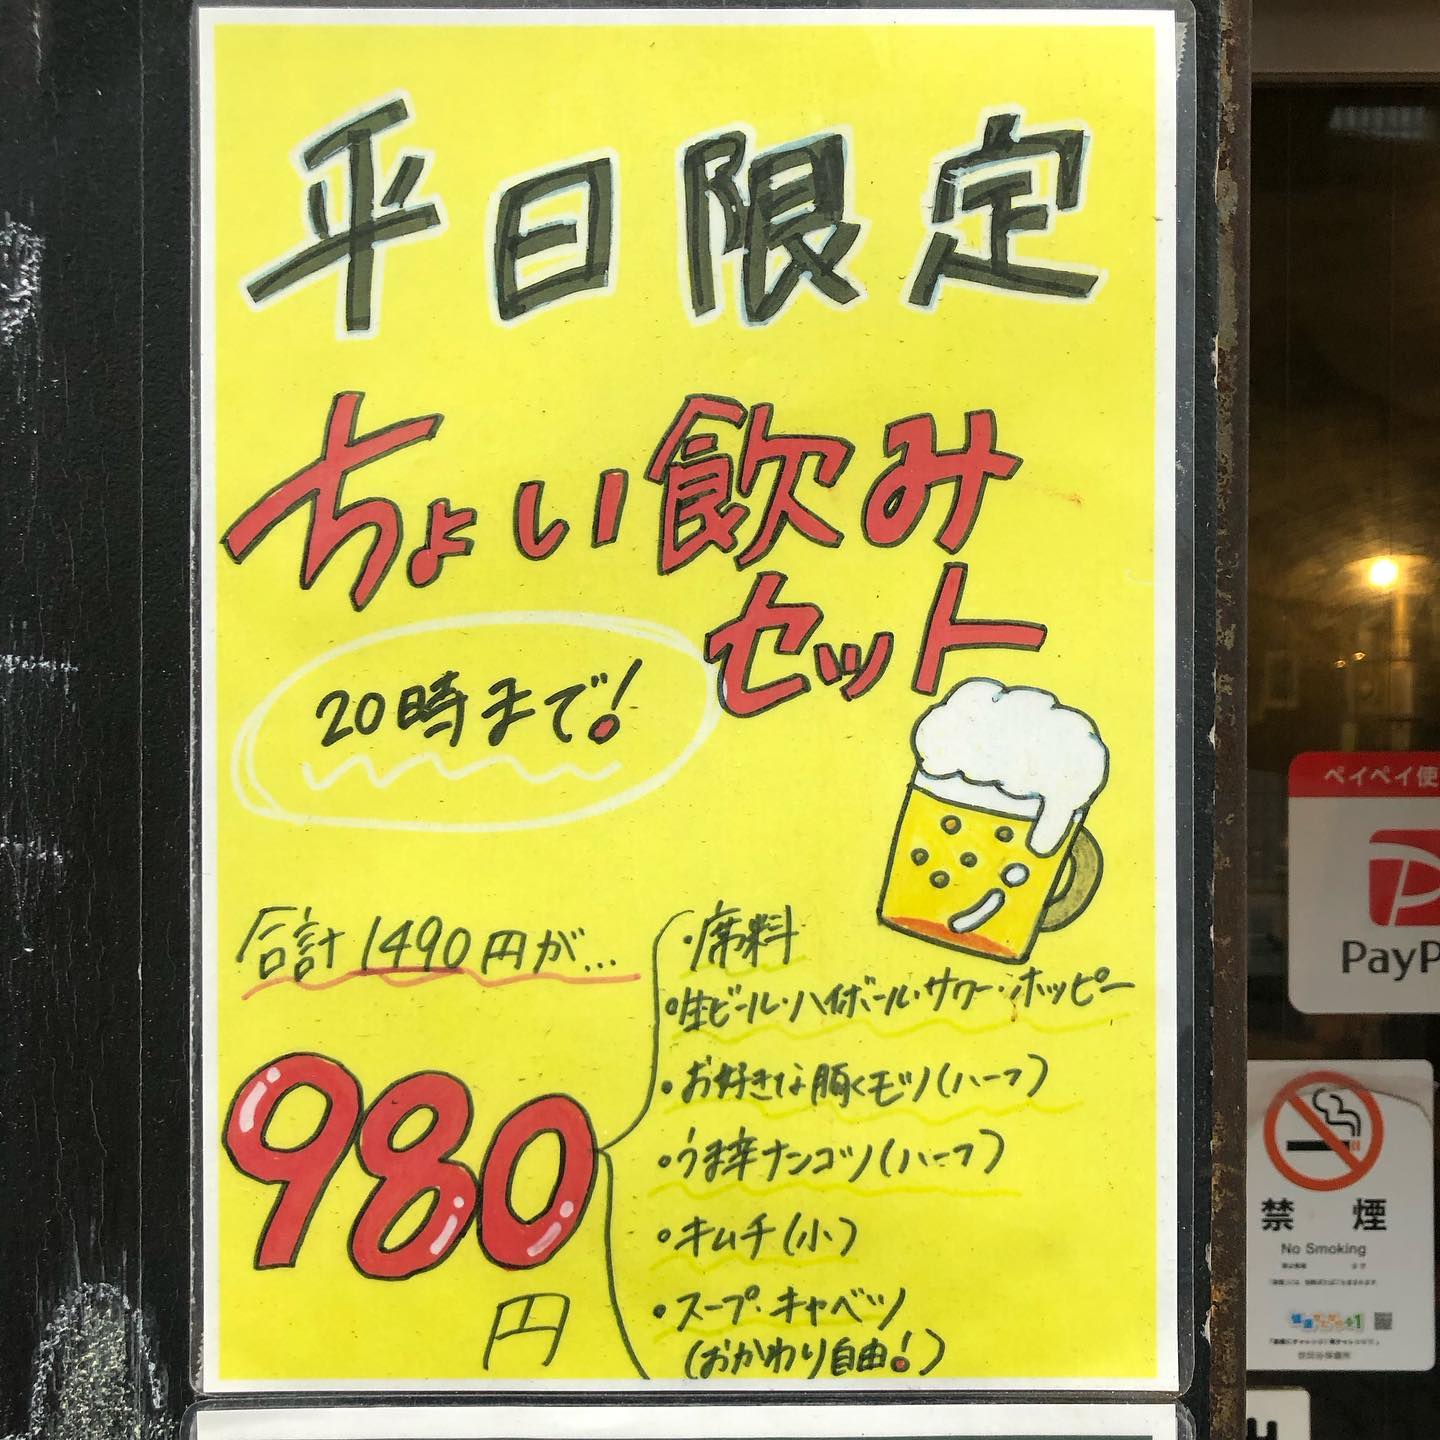 平日限定
ちょい飲み
セット
20時まで!
合計1490円が...
980
円
・席料
・生ビール・ハイボール・サワー・ホッピー
・お好きな豚くモツ(ハーフ)
・うま辛ナンコツ(ハーフ)
・キムチ(小)
・スープ・キャベツ
(おかわり自由!)
ペイペイ使
PayP
禁 煙
No Smoking